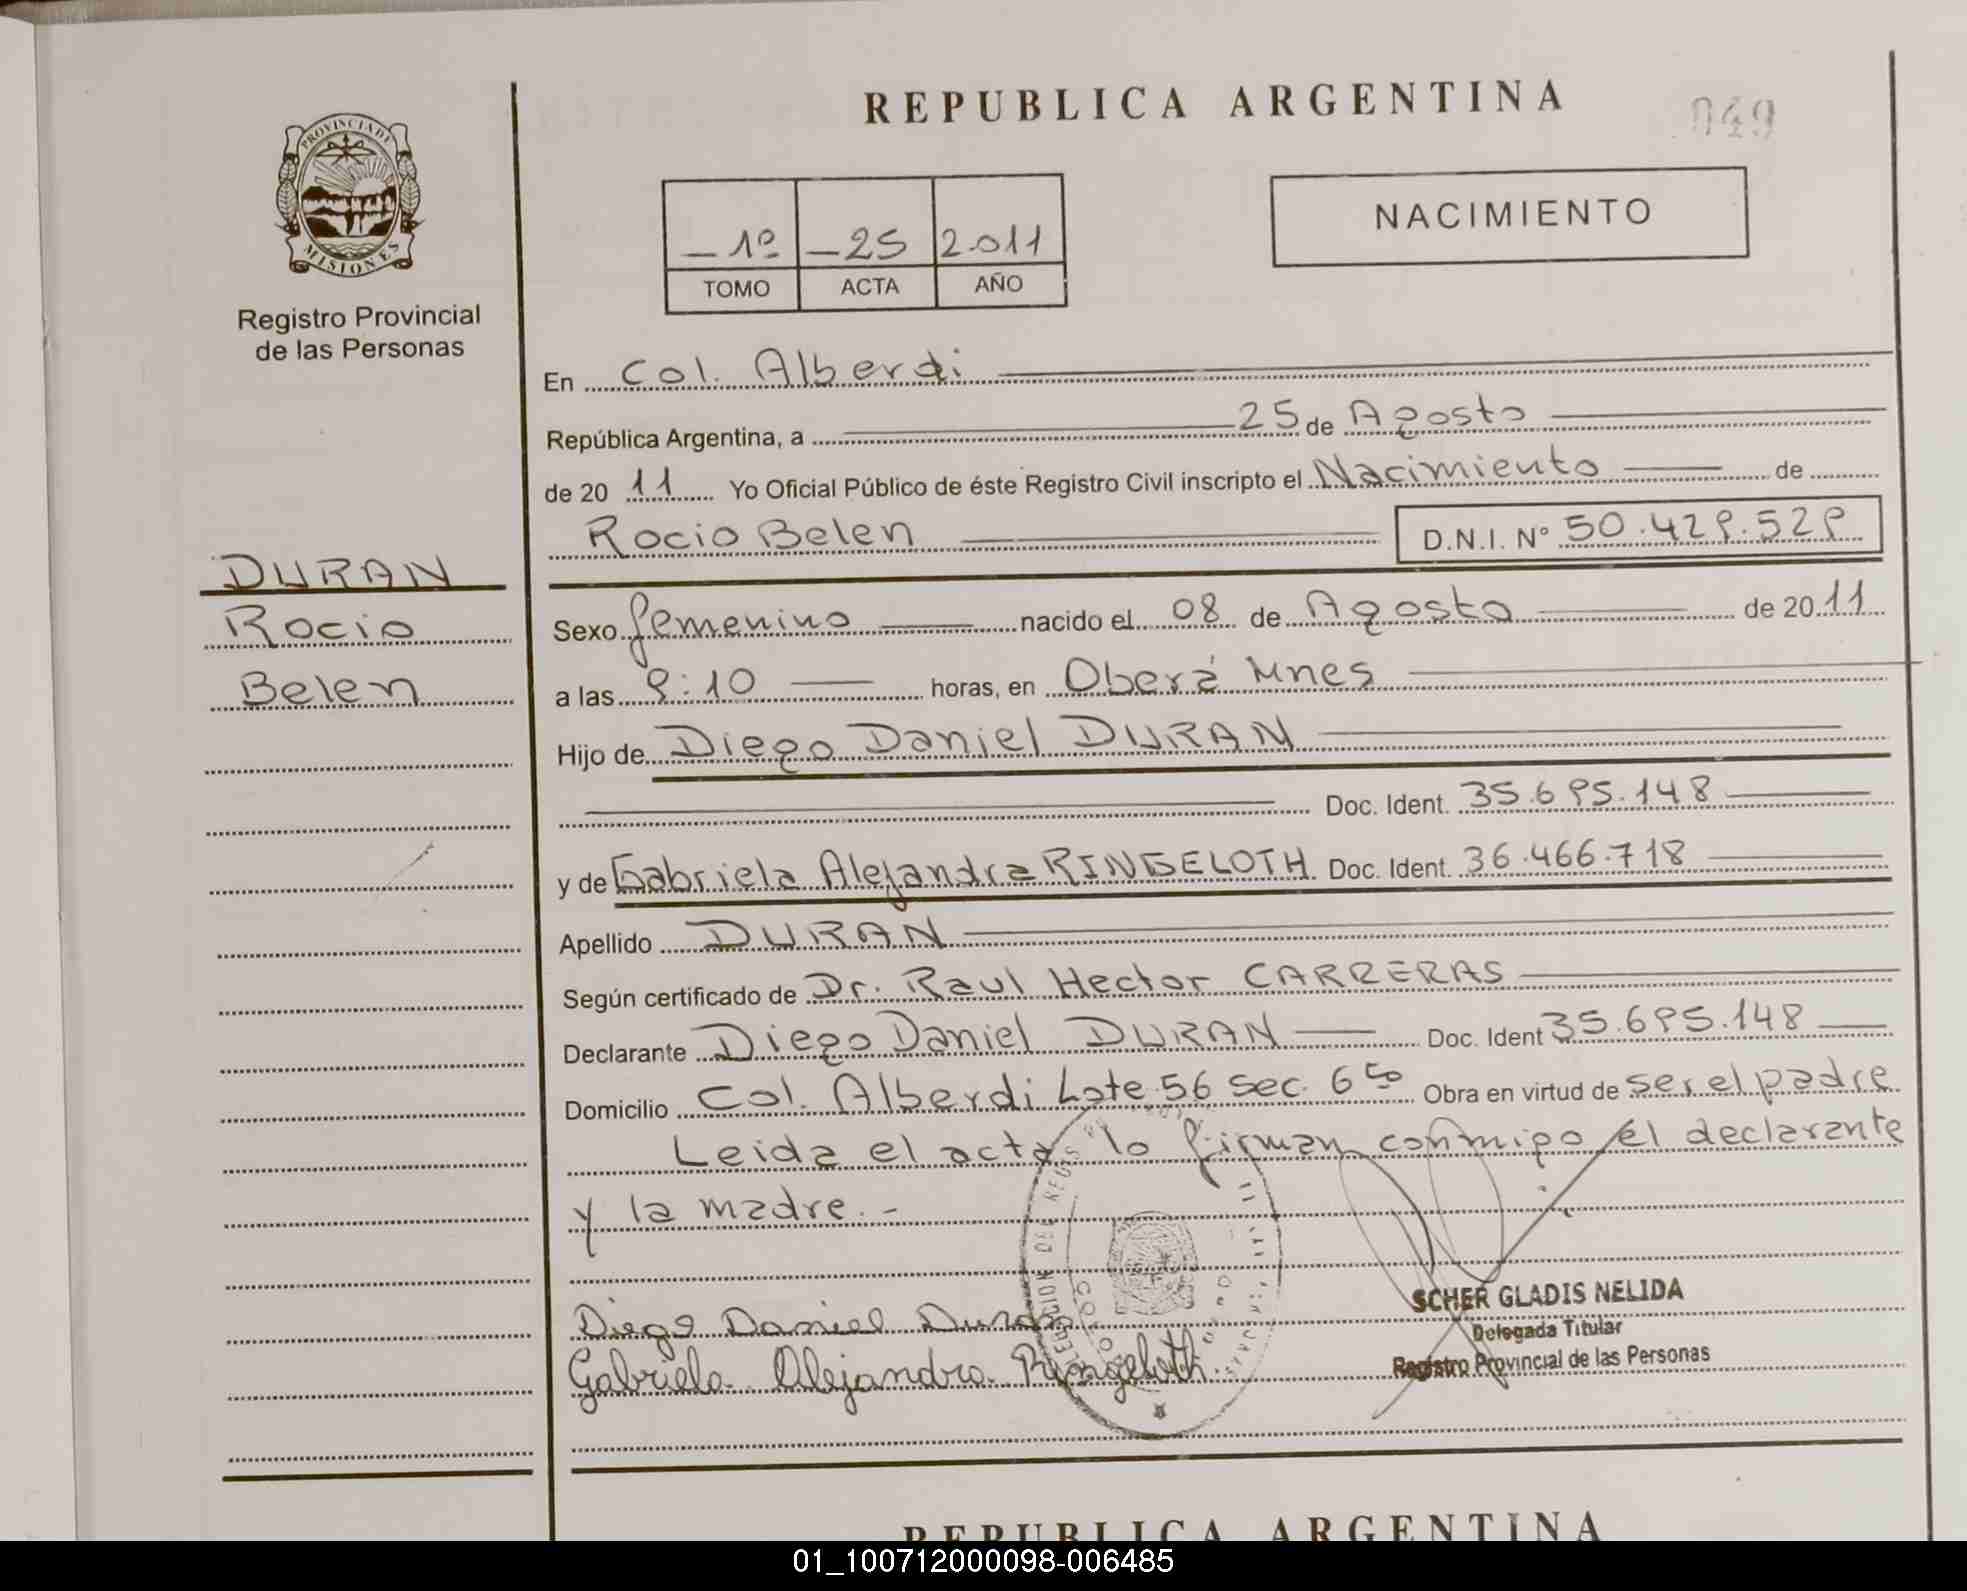 REPUBLICA ARGENTINA
049
PROVINCIA DE
MISIONES
Registro Provincial
de las Personas
1º 25 2.011
TOMO ACTA AÑO
NACIMIENTO
En Col. Alberdi
República Argentina, a 25 de Agosto
de 20 11 Yo Oficial Público de éste Registro Civil inscripto el Nacimiento de
Rocio Belen D.N.I. Nº 50.429.529
DURAN
Rocio
Belen
Sexo femenino nacido el 08 de Agosto de 20 11
a las 9:10 horas, en Oberá Mnes
Hijo de Diego Daniel DURAN
Doc. Ident. 35.695.148
y de Gabriela Alejandra RINGELOTH Doc. Ident. 36.466.718
Apellido DURAN
Según certificado de Dr. Raul Hector CARRERAS
Declarante Diego Daniel DURAN Doc. Ident 35.695.148
Domicilio Col. Alberdi Lote 56 Sec. 6 Obra en virtud de ser el padre
Leida el acta lo firman conmigo el declarante
y la madre.-
Diego Daniel Duran
Gabriela Alejandra Ringeloth
SCHER GLADIS NELIDA
Delegada Titular
Registro Provincial de las Personas
REPUBLICA ARGENTINA
01_100712000098-006485